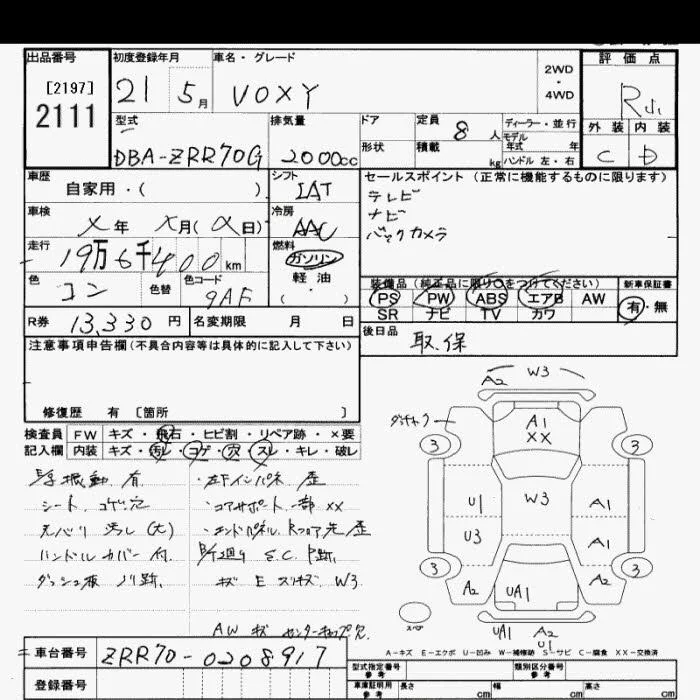 出品番号
[2197]
2111
初度登録年月
21 5月
車名・グレード
VOXY
2WD
・
4WD
評価点
外装 内装
C D
型式
DBA-ZRR70G
排気量
2000cc
ドア
形状
定員
8人
積載
kg
ディーラー・並行
モデル
年式 年
ハンドル 左・右
車歴
自家用・( )
シフト
IAT
セールスポイント (正常に機能するものに限ります)
テレビ
ナビ
バックカメラ
車検
年 月( 日)
冷房
AAC
走行
19万6千400km
燃料
ガソリン
軽油
・
( )
色
コン
色替
色コード
9AF
装備品 (純正品に限り○をつけてください)
PS PW ABS エアB AW
SR ナビ TV カワ
新車保証書
有・無
R券 13,330円
名変期限 月 日
後日品
取.保
注意事項申告欄(不具合内容等は具体的に記入して下さい)
修復歴 有 〔箇所 〕
検査員 FW キズ・飛石・ヒビ割・リペア跡・×要
記入欄 内装 キズ・汚レ・コゲ・穴・スレ・キレ・破レ
振動 有
シート コゲ穴
汚レ (大)
ハンドルカバー 付.
ダッシュ板 ノリ跡.
左Fインパネ 歪
・コアサポート一部 XX
・エンドパネル Rフロア先 歪
S.C. 跡.
キズ E スリキズ W3
AW キズ センターキャップ欠
A2 W3
A1
XX
3 3
W3
U1
U3
A1
A1
3 3
A2 A2
UA1
UA1 A2
U1
スペア
A-キズ E-エクボ U-凹み W-補修跡 S-サビ C-腐食 XX-交換済
車台番号 ZRR70-0208917
登録番号
型式指定番号
参考
類別区分番号
参考
車庫証明用
参考
長さ cm
幅 cm
高さ cm